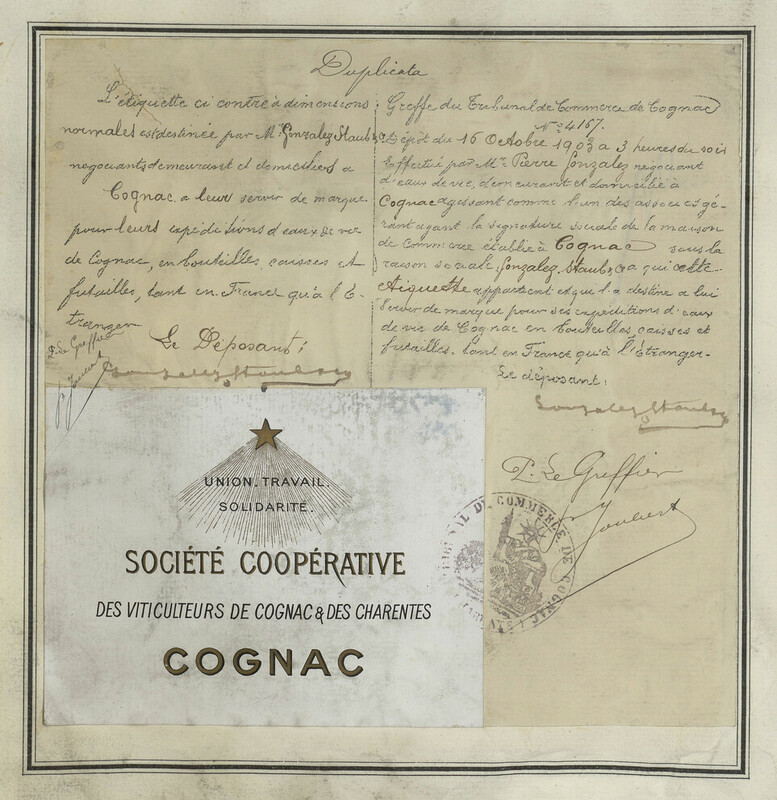 Duplicata
L'étiquette ci contre à dimensions
normales est destinée par Mrs Gonzalez Staub & Ca
négociants demeurant et domiciliés à
Cognac a leur servir de marque
pour leurs expéditions d'eaux de vie
de Cognac, en bouteilles, caisses et
futailles, tant en France qu'à l'É-
tranger
Le Déposant;
P. Le Greffier
Joubert
Gonzalez Staub & Ca
Greffe du Tribunal de Commerce de Cognac
No 4167.
Dépôt du 16 Octobre 1903 a 3 heures du soir
Effectué par Mr Pierre Gonzalez négociant
d'eaux de vie, demeurant et domicilié à
Cognac agissant comme l'un des associés gé-
rant ayant la signature sociale de la maison
de Commerce établie à Cognac sous la
raison sociale Gonzalez, Staub & Ca à qui cette
étiquette appartient et qui l'a destine a lui
servir de marque pour ses expéditions d'eaux
de vie de Cognac en bouteilles, caisses et
futailles, tant en France qu'à l'Étranger-
Le déposant;
Gonzalez Staub & Ca
P. Le Greffier
Joubert
TRIBUNAL DE COMMERCE DE COGNAC
UNION. TRAVAIL.
SOLIDARITÉ.
SOCIÉTÉ COOPÉRATIVE
DES VITICULTEURS DE COGNAC & DES CHARENTES
COGNAC